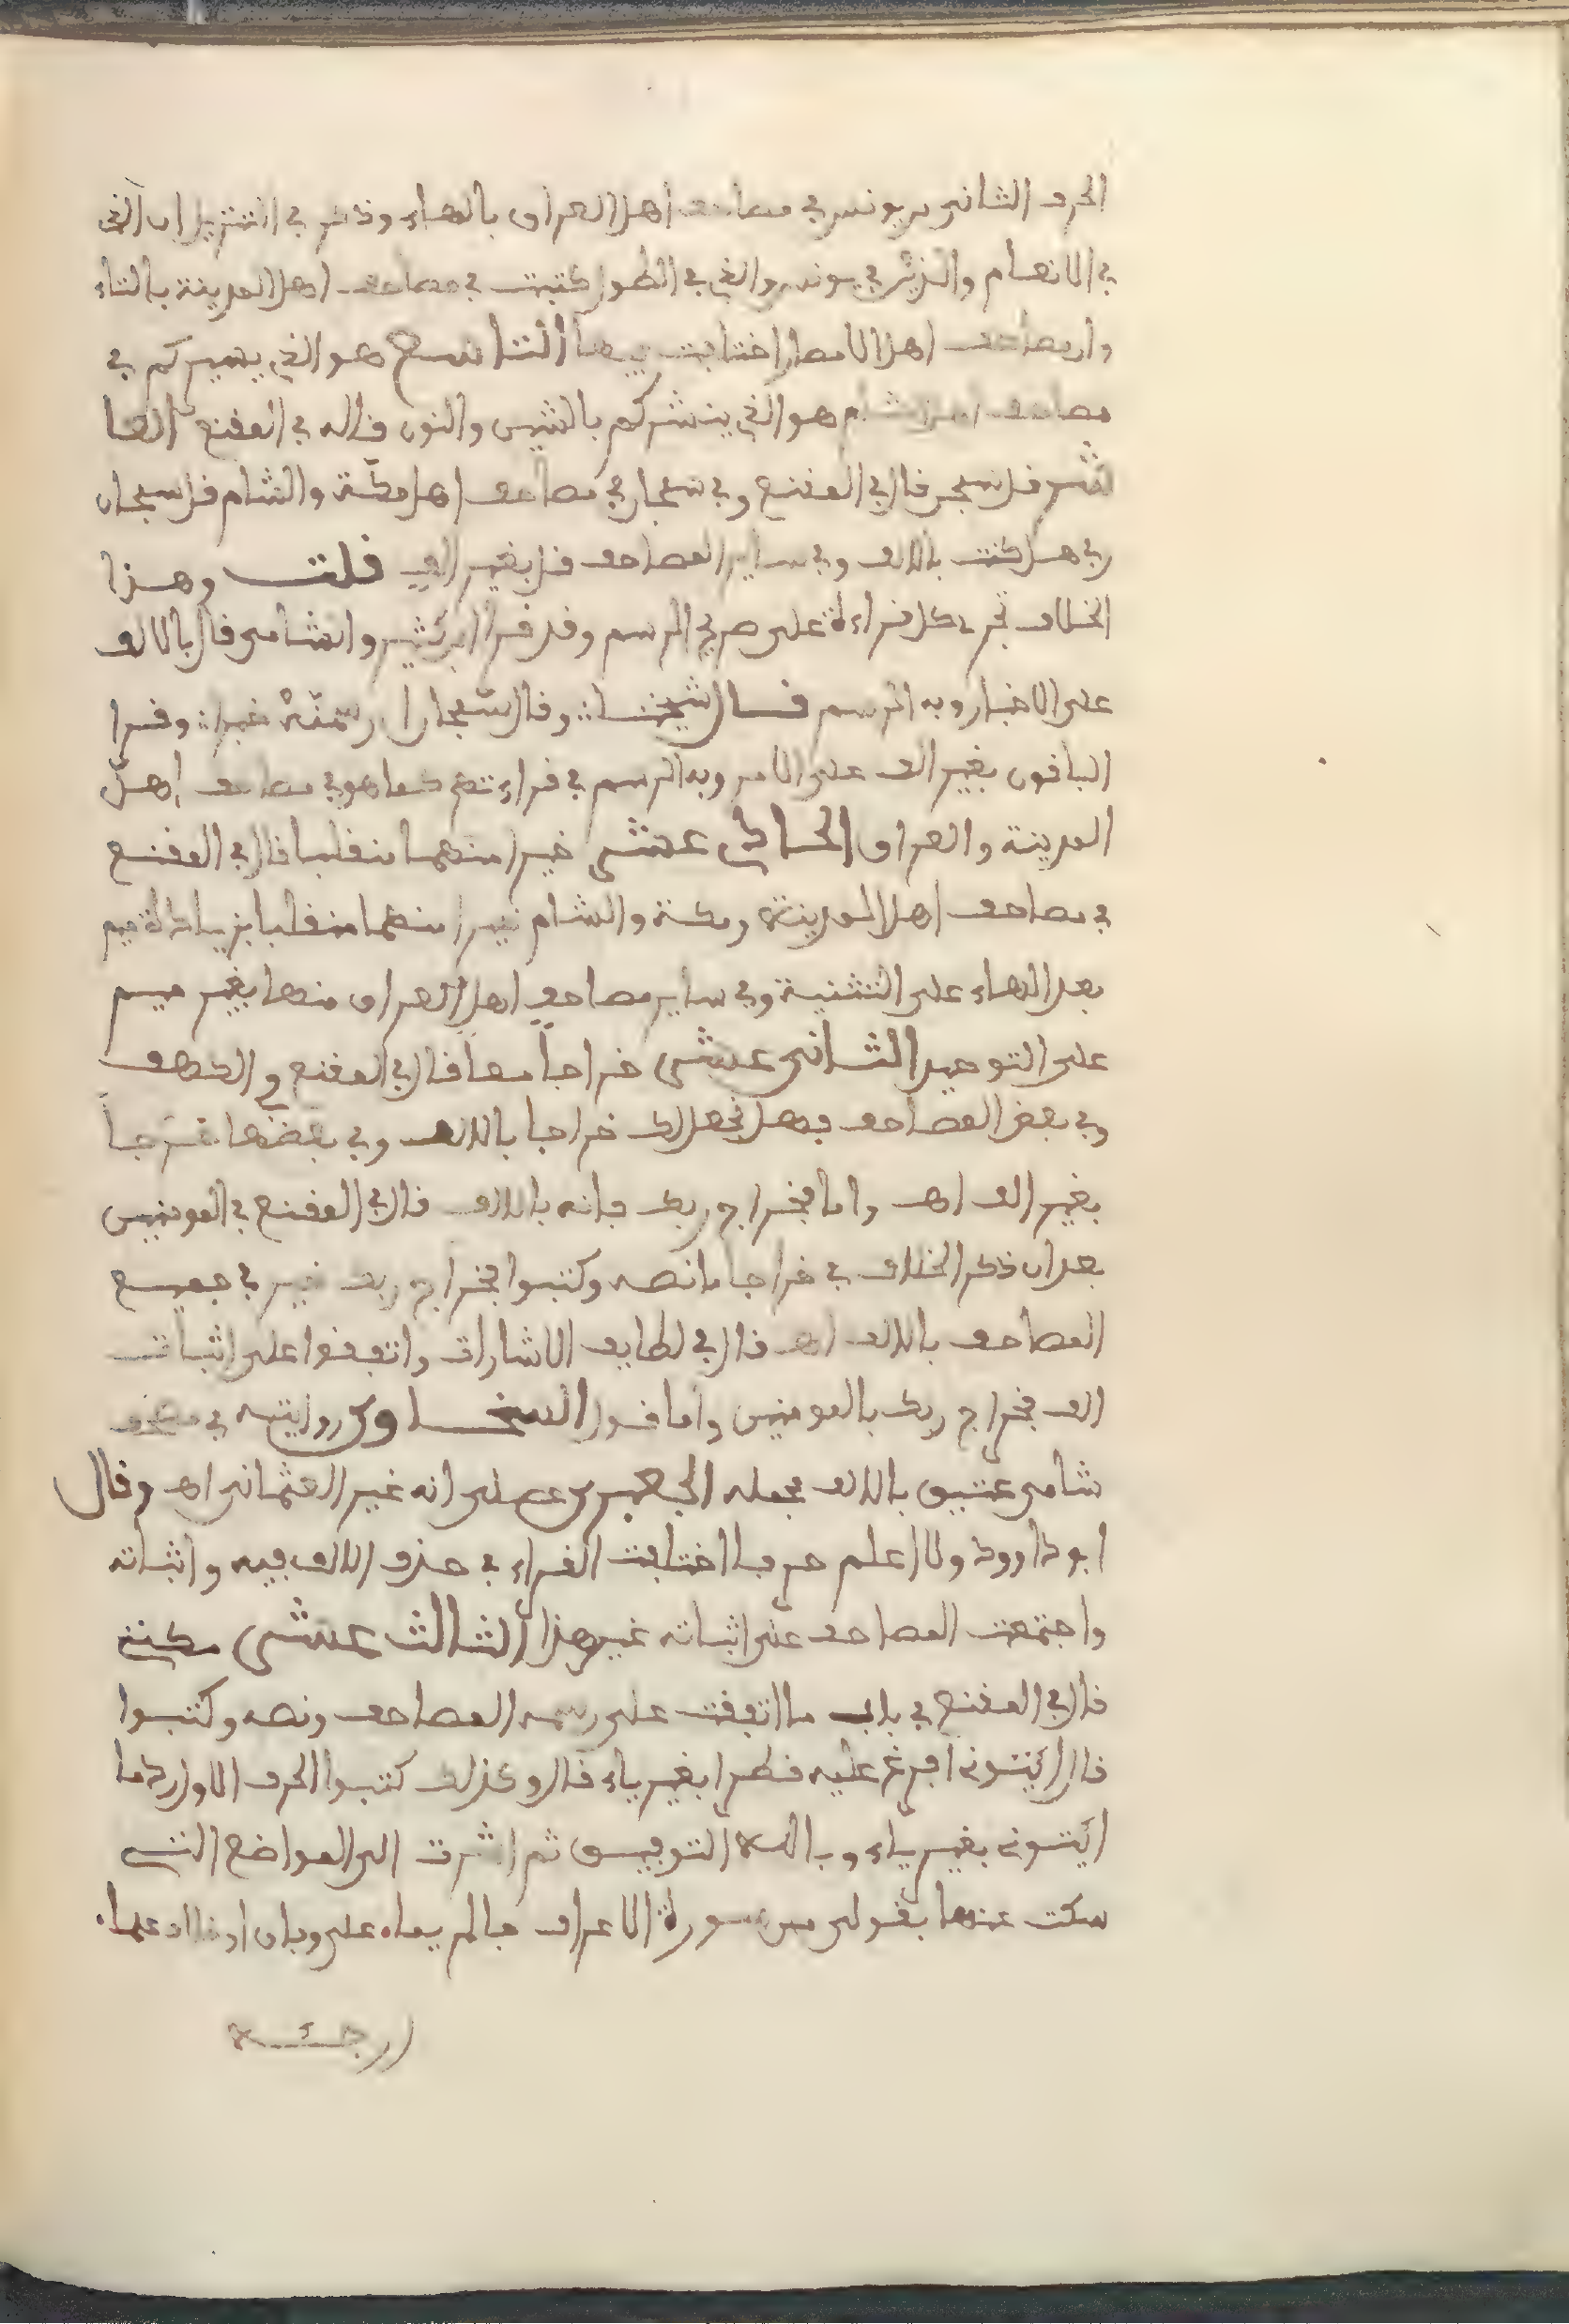 الحرف الثاني من يونس في مصاحف اهل العراق بالهاء وذكر في التنزيل ان التي
في الانعام والذين في يونس والتي في الطول كتبت في مصاحف اهل المدينة بالتاء
وان مصاحف اهل الامصار اختلفت فيها التاسع هو الذي يسيركم في
مصاحف اهل الشام هو الذي ينشركم بالشين والنون قاله في المقنع العا
شر قل سبحن قال في المقنع وفي سبحان في مصاحف اهل مكة والشام قل سبحان
ربي هل كنت بالالف وفي ساير المصاحف قل بغير الف قلت وهذا
الخلاف تجري كل قراءة على صريح الرسم وقد قرا ابن كثير والشامي قال بالالف
على الاخبار وبه الرسم قال شيخنا وقال سبحان ا رسمه خبرا وقرا
الباقون بغير الف على الامر وبه الرسم في قراءتهم كما هو في مصاحف اهل
المدينة والعراق الحادي عشر خيرا منهما منقلبا قال في المقنع
في مصاحف اهل المدينة ومكة والشام خيرا منهما منقلبا بزيادة ميم
بعد الهاء على التثنية وفي ساير مصاحف اهل العراق منها بغير ميم
على التوحيد الثاني عشر خراجا معا قال في المقنع في الكهف
وفي بعض المصاحف فهل نجعل لك خراجا بالالف وفي بعضها خرجا
بغير الف اهـ واما فخراج ربك فانه بالالف قال في المقنع في المومنين
بعد ان ذكر الخلاف في خراجا ما نصه وكتبوا فخراج ربك خير في جميع
المصاحف بالالف اهـ قال في لطايف الاشارات واتفقوا على اثبات
الف فخراج ربك بالمومنين واما قول السخاوي رايته في مصحف
شامي عتيق بالالف فحمله الجعبري على انه غير العثماني اهـ وقال
ابو داوود ولا اعلم حرفا اختلفت القراء في حذف الالف فيه واثباته
واجتمعت المصاحف على اثباته غير هذا الثالث عشر مكنني
قال في المقنع في باب ما اتفقت على رسمه المصاحف ونصه وكتبوا
قال ايتوني افرغ عليه قطرا بغير ياء قال وكذلك كتبوا الحرف الاول ردما
ايتوني بغير ياء وبالله التوفيق ثم اشرت الى المواضع التي
سكت عنها بقولي من سورة الاعراف فالم
ارجئه